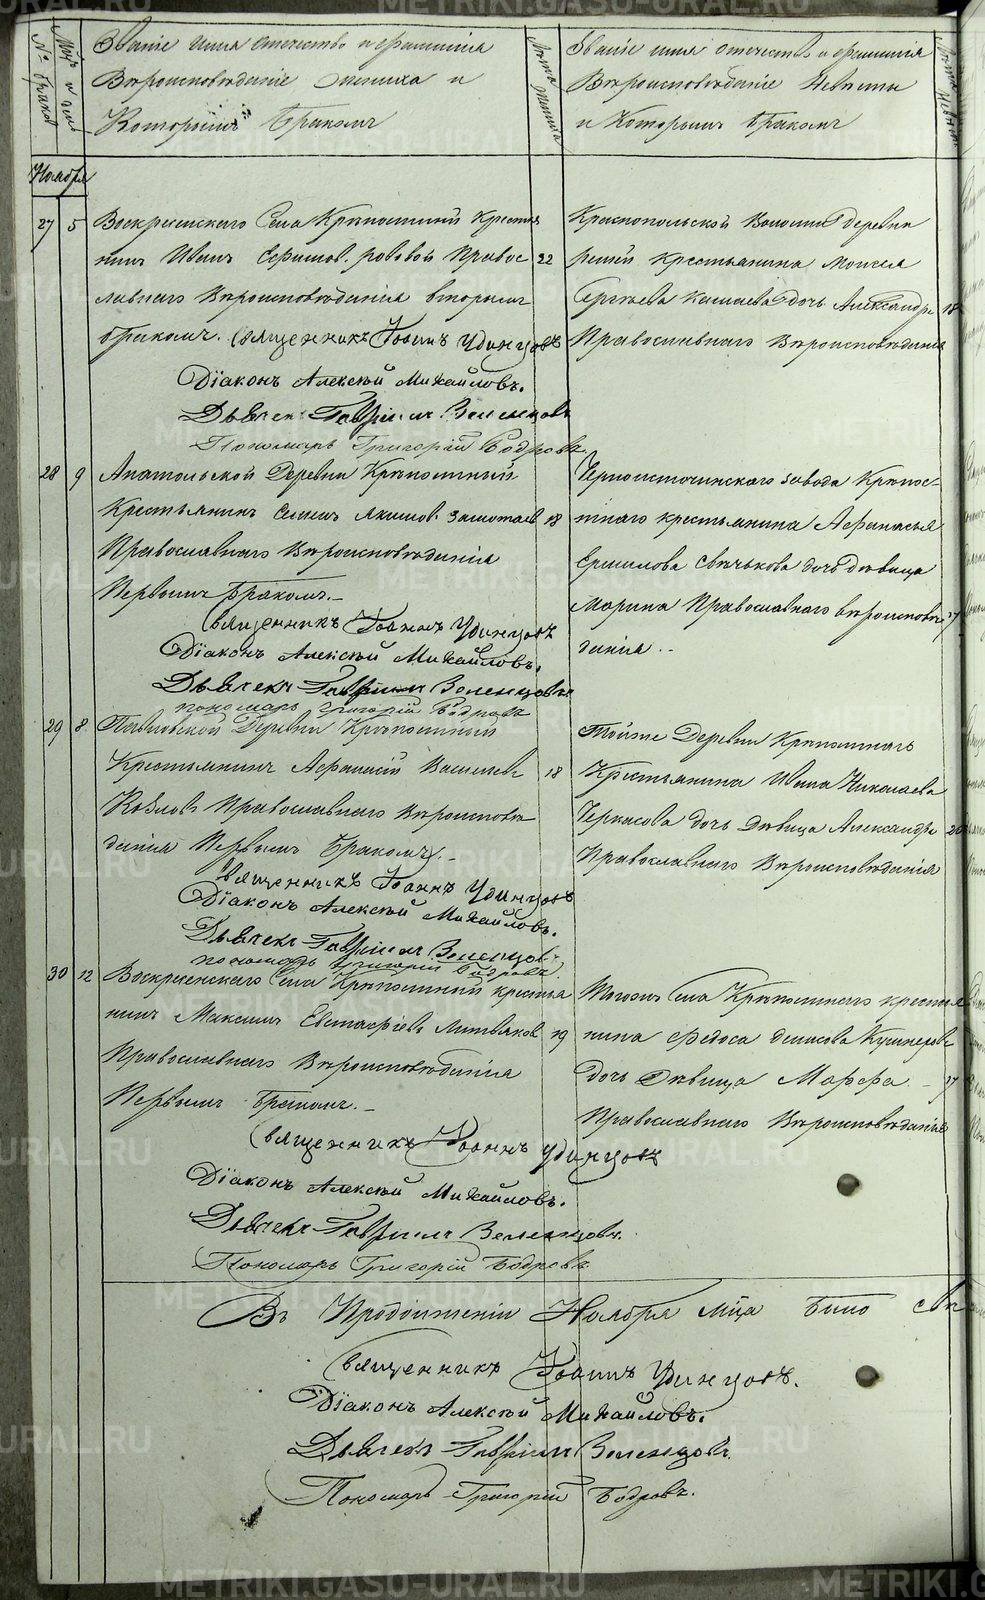 № браковъ
Мѣсяцъ и число
Званіе имя отечество и фамилія
Вѣроисповѣданіе жениха и
Которымъ Бракомъ
Лѣта жениха
Званіе имя отечество и фамилія
Вѣроисповѣданіе Невѣсты
и Которымъ бракомъ
Лѣта невѣст
Ноября
27 5 Воскресенскаго Села Крѣпостный крестья
нинъ Иванъ Православ 22
лавнаго Вѣроисповѣданія вторымъ
бракомъ. Священникъ Іоаннъ Удинцовъ
Діаконъ Алексѣй Михайловъ.
Дьячекъ Гавріилъ Зеленцовъ
Пономарь Григорій Бодровъ.
Краснопольской Волости деревни
крестьянина Моисея
Сергѣева дочь Александра 18
Православнаго Вѣроисповѣданія
28 9 Анатольской Деревни Крѣпостный
Крестьянинъ Семенъ Якимов 18
Православнаго Вѣроисповѣданія
Первымъ Бракомъ.-
Священникъ Іоаннъ Удинцовъ
Діаконъ Алексѣй Михайловъ.
Дьячекъ Гавріилъ Зеленцовъ
пономарь Григорій Бодровъ
Черноисточинскаго завода Крѣпос-
тнаго крестьянина Афанасья
Ермилова дочь дѣвица
Марина Православнаго вѣроисповѣ 27
данія. -
29 8 Павловской Деревни Крѣпостный
Крестьянинъ Афанасій Васильевъ 18
Козловъ Православнаго вѣроисповѣ
данія Первымъ Бракомъ.-
Священникъ Іоаннъ Удинцовъ
Діаконъ Алексѣй Михайловъ.
Дьячекъ Гавріилъ Зеленцовъ
пономарь Григорій Бодровъ.
Тойже Деревни Крѣпостнаго
Крестьянина Ивана Николаева
Черкасова дочь Дѣвица Александра 20
Православнаго Вѣроисповѣданія
30 12 Воскресенскаго Села Крѣпостный крестья
нинъ Максимъ Евстафіевъ Литвяков 19
Православнаго Вѣроисповѣданія
Первымъ бракомъ.-
Священникъ Іоаннъ Удинцовъ
Діаконъ Алексѣй Михайловъ.
Дьячекъ Гавріилъ Зеленцовъ.
Пономарь Григорій Бодровъ
Тогожъ Села Крѣпостнаго крестья
нина Федоса Денисова
дочь Дѣвица Марфа. - 17
Православнаго Вѣроисповѣданія
Въ Продолженіи Ноября Мца было
Священникъ Іоаннъ Удинцовъ.
Діаконъ Алексѣй Михайловъ.
Дьячекъ Гавріилъ Зеленцовъ.
Пономарь Григорій Бодровъ.
METRIKI.GASO-URAL.RU